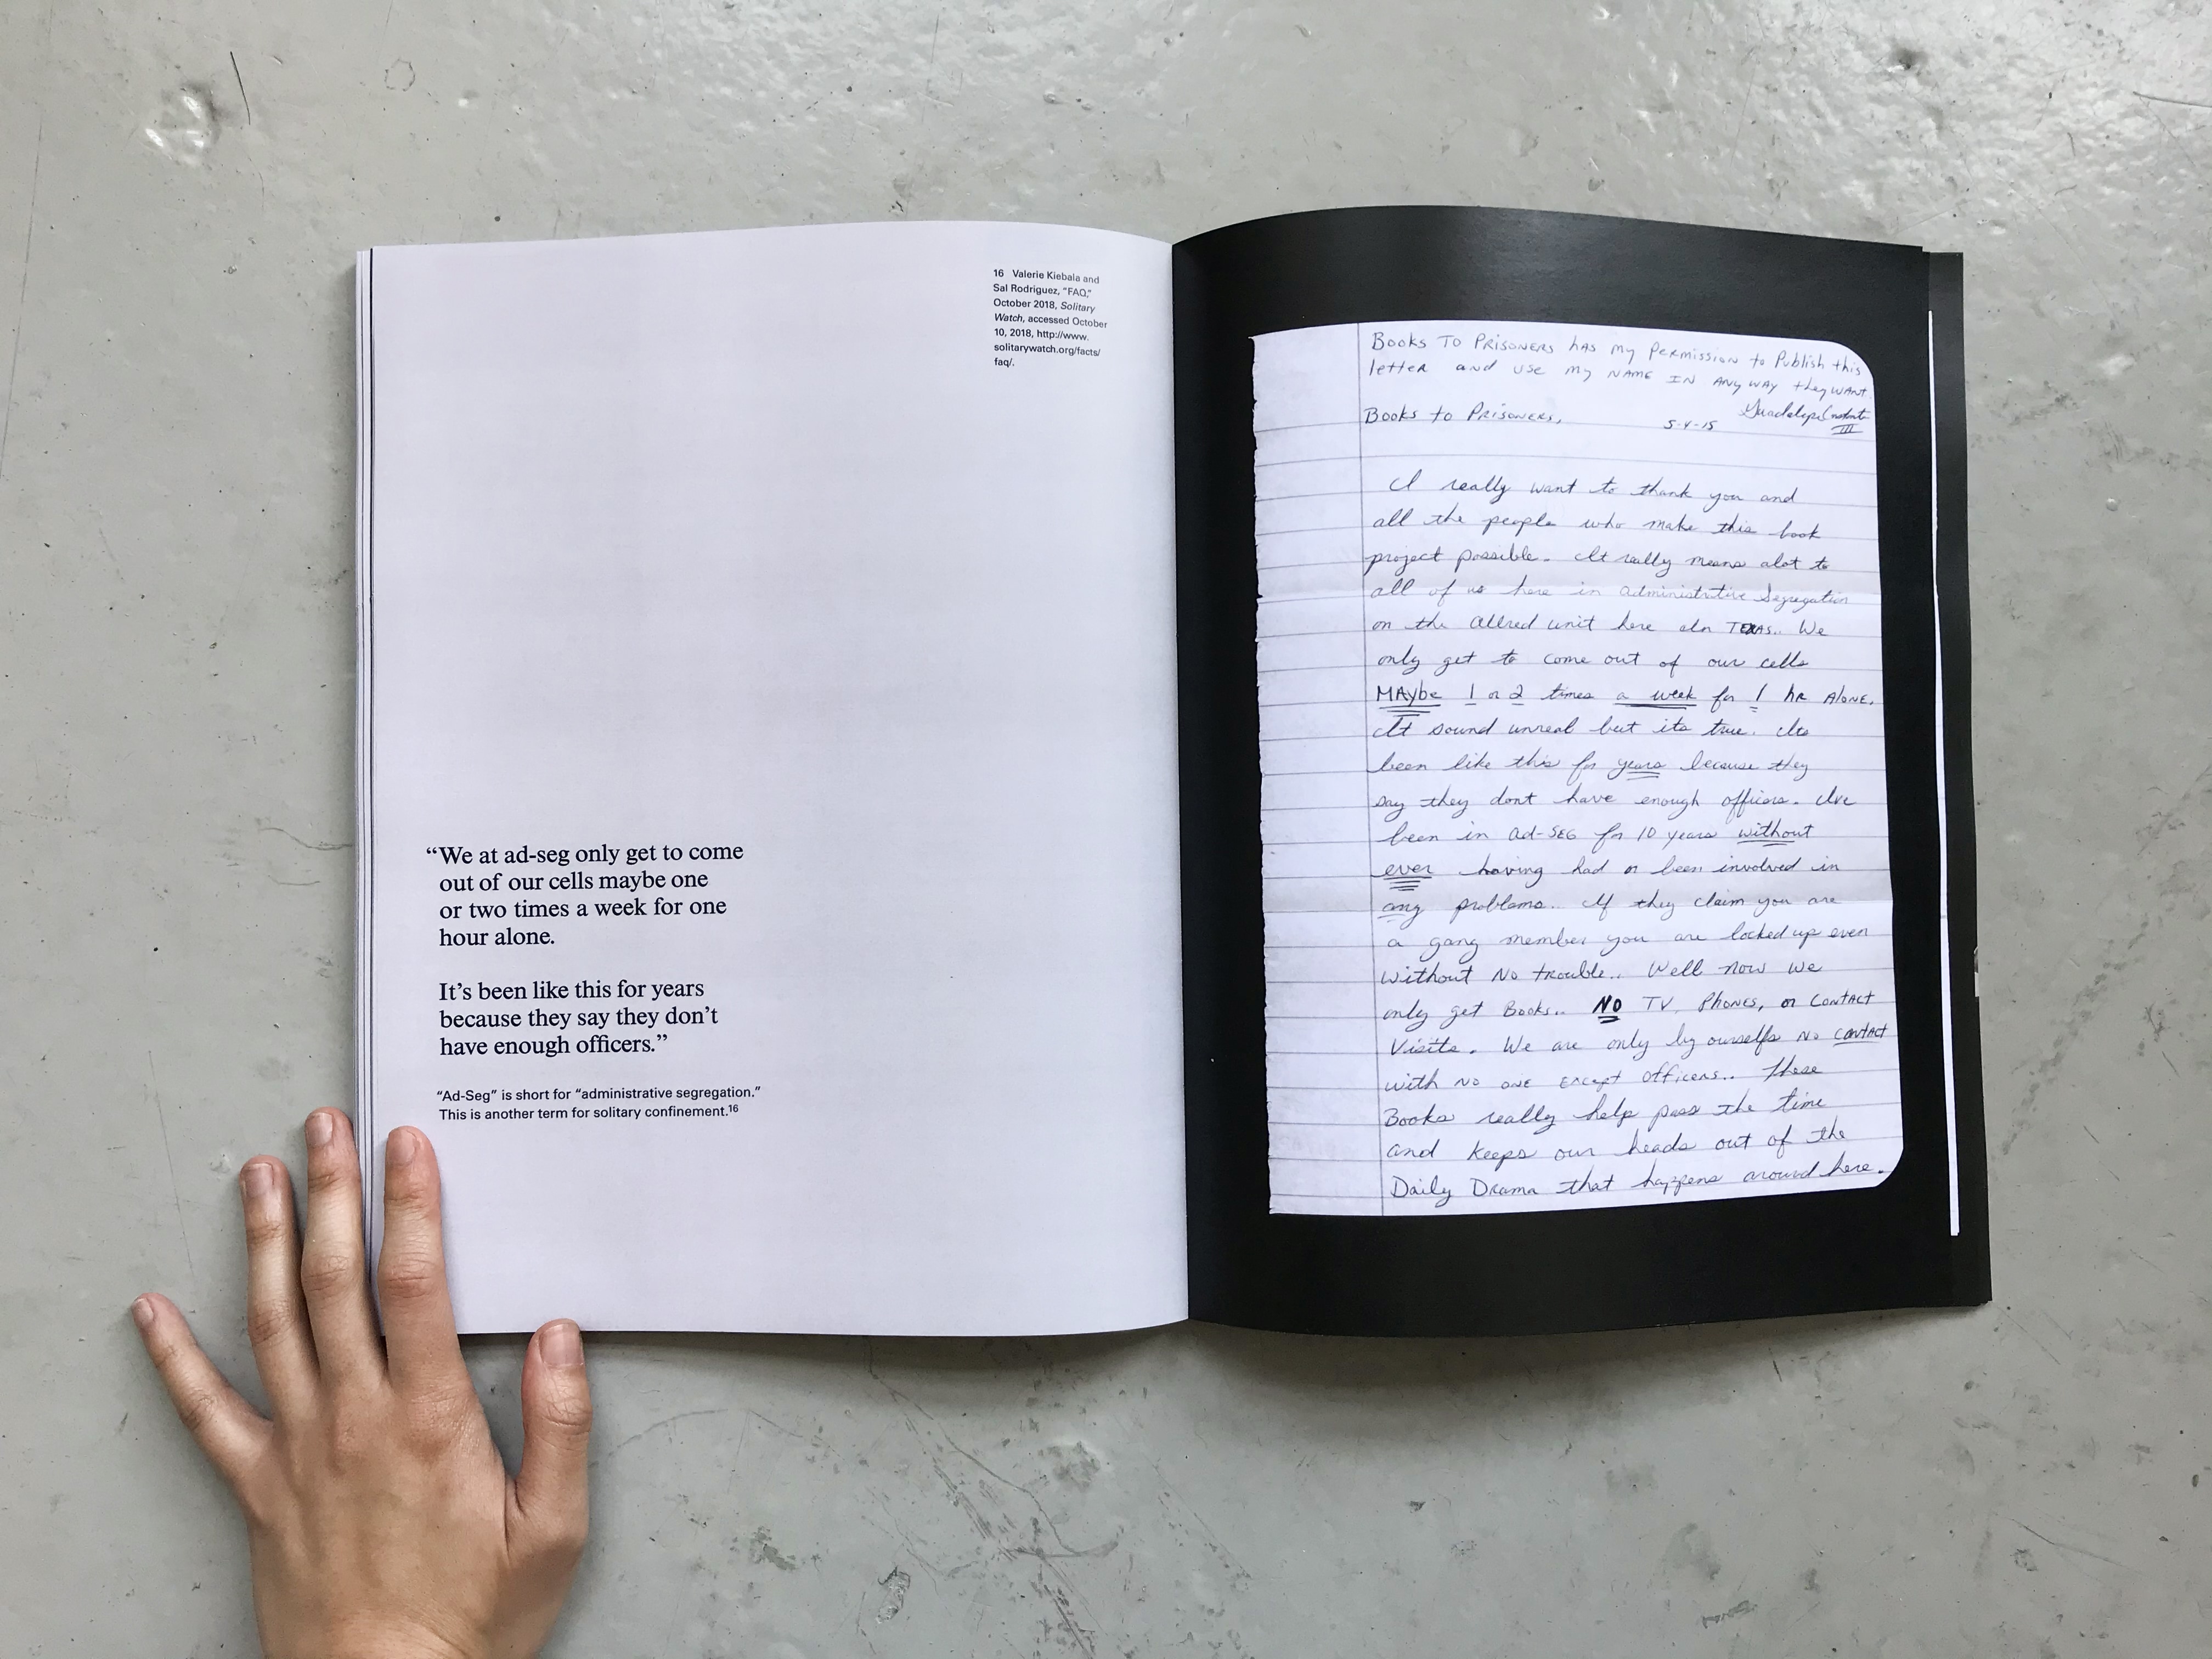 16 Valerie Kiebala and
Sal Rodriguez, “FAQ,”
October 2018, Solitary
Watch, accessed October
10, 2018, http://www.
solitarywatch.org/facts/
faq/.
“We at ad-seg only get to come
out of our cells maybe one
or two times a week for one
hour alone.
It’s been like this for years
because they say they don’t
have enough officers.”
“Ad-Seg” is short for “administrative segregation.”
This is another term for solitary confinement.16
Books To Prisoners has my Permission to Publish this
letter and use my NAME IN ANY WAY they WANT.
Books to Prisoners,
5-4-15
III
I really want to thank you and
all the people who make this book
project possible. It really means alot to
all of us here in administrative Segregation
on the Allred unit here In TEXAS.. We
only get to come out of our cells
MAybe 1 or 2 times a week for 1 hR AloNE.
It sound unreal but its true. Its
been like this for years because they
say they dont have enough officers. Ive
been in Ad-SEG for 10 years without
ever having had or been involved in
any problems.. If they claim you are
a gang member you are locked up even
without No trouble.. Well now we
only get Books.. NO TV, Phones, or CONTACT
Visits. We are only by ourselfs No CONTACT
with NO ONE Except Officers.. These
Books really help pass the time
and keeps our heads out of the
Daily Drama that happens around here.